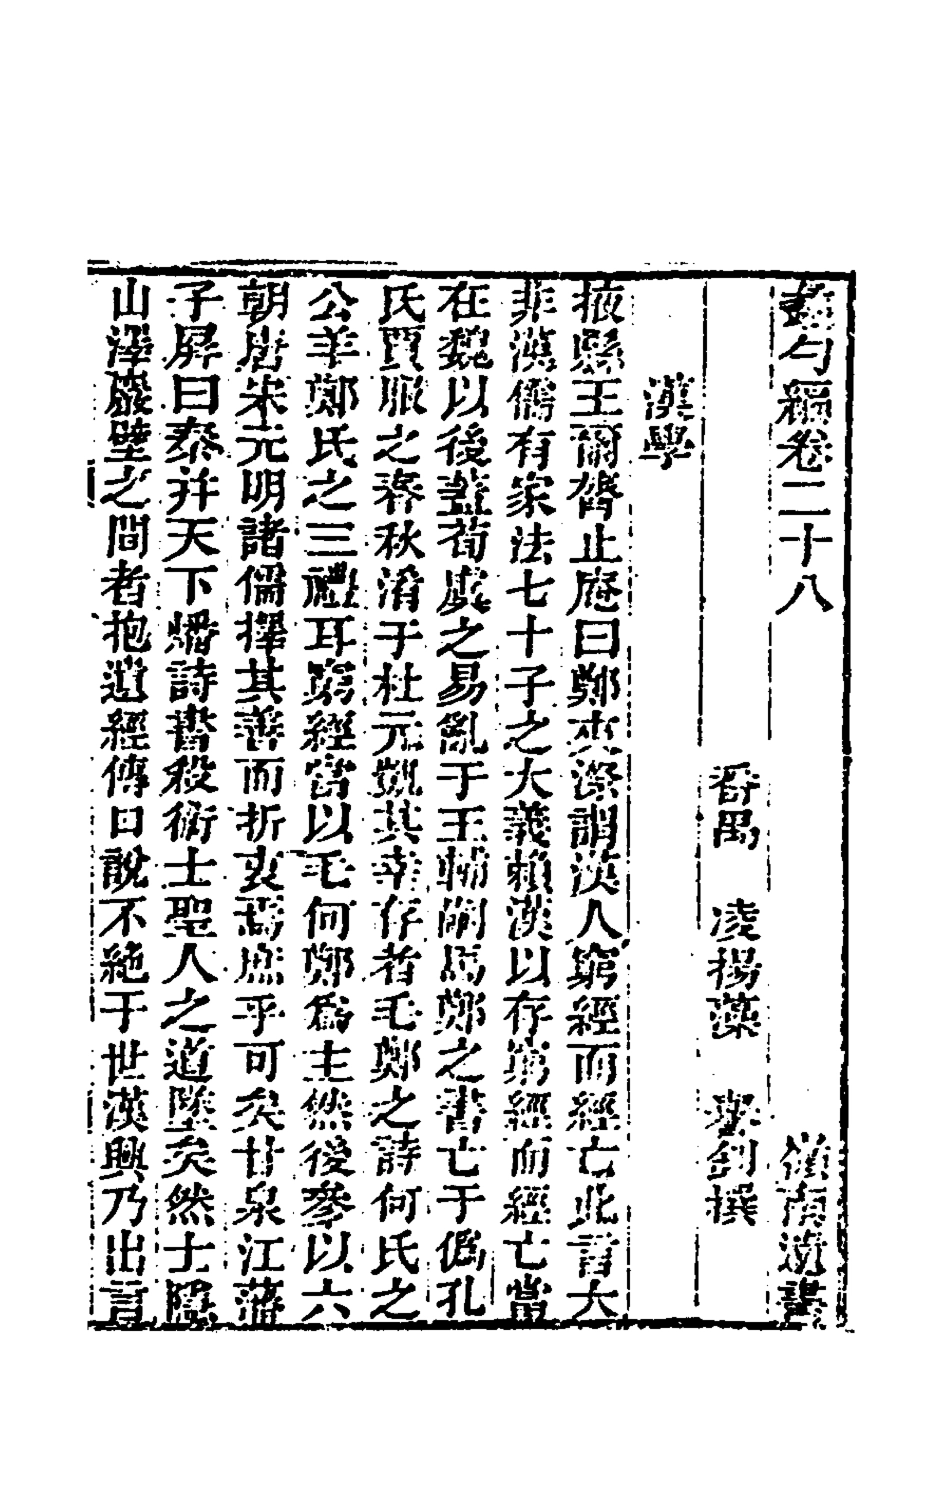 蠡勺編卷二十八 嶺南遺書
番禺 凌揚藻 藥釗撰
漢學
掖縣王爾膂止庵曰鄭夾漈謂漢人窮經而經亡此言大
非漢儒有家法七十子之大義賴漢以存窮經而經亡當
在魏以後蓋荀虞之易亂于王輔嗣馬鄭之書亡于僞孔
氏賈服之春秋淆于杜元凱其幸存者毛鄭之詩何氏之
公羊鄭氏之三禮耳窮經當以毛何鄭爲主然後參以六
朝唐宋元明諸儒擇其善而折衷焉庶乎可矣甘泉江藩
子屏曰秦并天下燔詩書殺術士聖人之道墜矣然士隱
山澤巖壁之間者抱遺經傳口說不絶于世漢興乃出言